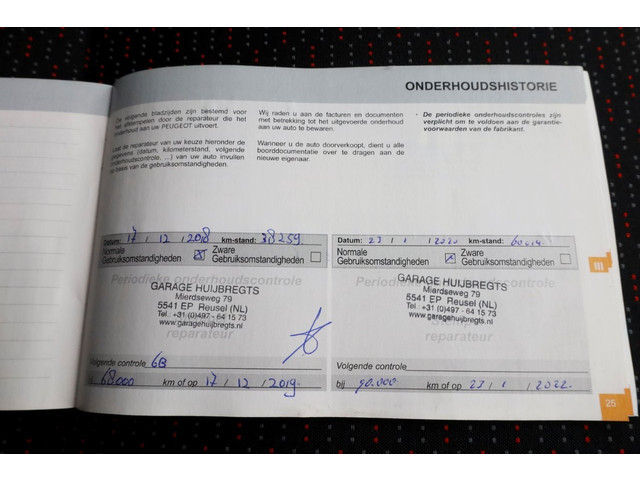 ONDERHOUDSHISTORIE
De volgende bladzijden zijn bestemd voor
het afstempelen door de reparateur die het
onderhoud aan uw PEUGEOT uitvoert.
Laat de reparateur van uw keuze hieronder de
gegevens (datum, kilometerstand, volgende
onderhoudscontrole, ...) van uw auto invullen
op basis van de gebruiksomstandigheden.
Wij raden u aan de facturen en documenten
met betrekking tot het uitgevoerde onderhoud
aan uw auto te bewaren.
Wanneer u de auto doorverkoopt, dient u alle
boorddocumentatie over te dragen aan de
nieuwe eigenaar.
• De periodieke onderhoudscontroles zijn
verplicht om te voldoen aan de garantie-
voorwaarden van de fabrikant.
Datum: 17 / 12 / 2018 km-stand: 38259
Normale Gebruiksomstandigheden Zware Gebruiksomstandigheden
Periodieke onderhoudscontrole
GARAGE HUIJBREGTS
Mierdseweg 79
5541 EP Reusel (NL)
Tel. +31 (0)497 - 64 15 73
www.garagehuijbregts.nl
reparateur
Volgende controle 6B
68.000 km of op 17 / 12 / 2019
Datum: 23 / 1 / 2020 km-stand: 60014
Normale Gebruiksomstandigheden Zware Gebruiksomstandigheden
GARAGE HUIJBREGTS
Mierdseweg 79
5541 EP Reusel (NL)
Tel. +31 (0)497 - 64 15 73
www.garagehuijbregts.nl
reparateur
Volgende controle
bij 90.000 km of op 23 / 1 / 2022
III
25